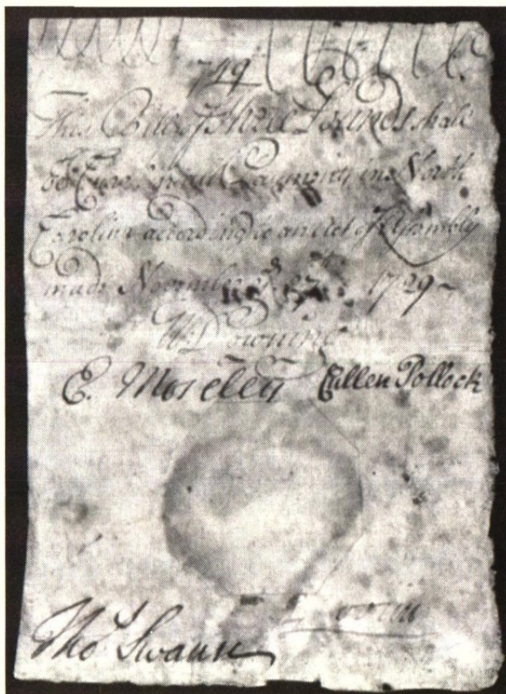 749
This Bill of three Pounds shall
be Curr in all Payments in North
Carolina according to an Act of Assembly
made Novembr 27 1729
W Downing
E. Moseley Cullen Pollock
Tho Swann